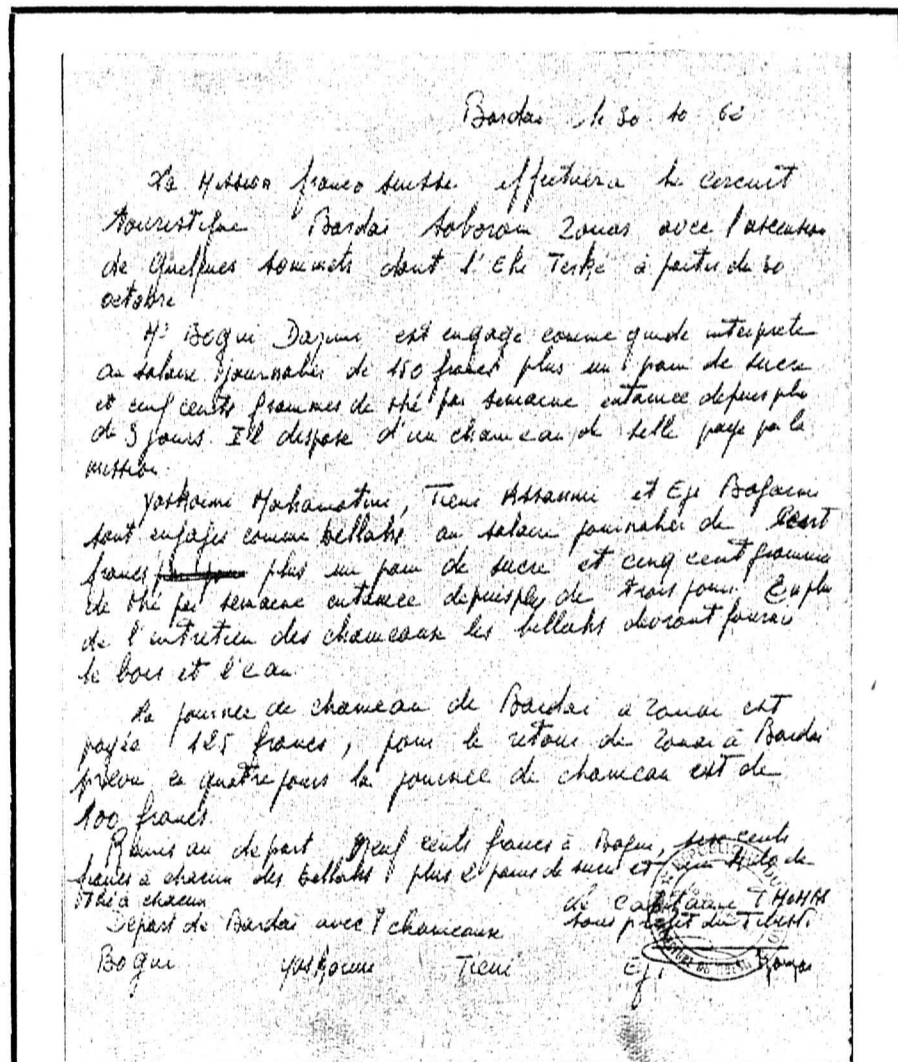 Bardai le 30 10 62
La Mission franco suisse effectuera le circuit
touristique Bardai Soborom Zouar avec l'ascension
de quelques sommets dont l'Ehi Terké à partir du 30
octobre
Mr Bogui Dazimi est engagé comme guide interprete
au salaire journalier de 150 francs plus un pain de sucre
et cinq cents grammes de thé par semaine entamée depuis plus
de 3 jours. Il dispose d'un chameau de selle payé par la
mission.
Yoskoimi Mahamatmi, Tieni Assanmi et Eji
sont engagés comme bellahs au salaire journalier de cent
francs plus un pain de sucre et cinq cent gramme
de thé par semaine entamée depuis plus de trois jours. En plus
de l'entretien des chameaux les bellahs devront fournir
le bois et l'eau.
La journée de chameau de Bardai à Zouar est
payée 125 francs, pour le retour de Zouar à Bardai
prévu en quatre jours la journée de chameau est de
100 francs.
Remis au depart neuf cents francs à Bogui, six cents
francs à chacun des bellahs plus 2 pains de sucre et un kilo de
thé à chacun
Le Capitaine THOMAS
Départ de Bardai avec 7 chameaux
sous préfet du Tibesti
Bogui Yoskoimi Tieni Eji